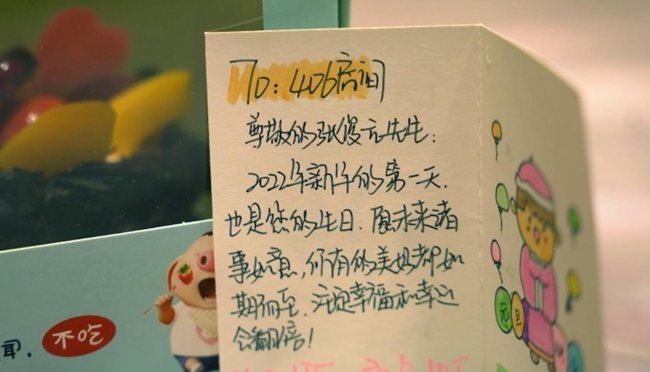 To: 406房间
尊敬的张俊元先生:
2022年新年的第一天.
也是您的生日.愿未来者
事如意,所有的美好都如
期而至,注定幸福和幸运
会翻倍!
元旦
闻,
不吃